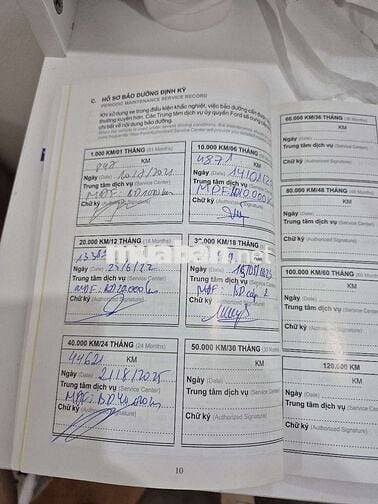 C. HỒ SƠ BẢO DƯỠNG ĐỊNH KỲ
PERIODIC MAINTENANCE SERVICE RECORD
Khi sử dụng xe trong điều kiện khắc nghiệt, việc bảo dưỡng cần được
thường xuyên hơn. Các Trung tâm dịch vụ ủy quyền Ford sẽ cung
chi tiết về nội dung bảo dưỡng.
1.000 KM/01 THÁNG (01 Months)
848 KM
Ngày (Date)
Trung tâm dịch vụ (Service Center)
MDF: BD 1000 km
Chữ ký (Authorized Signature)
10.000 KM/06 THÁNG
4871 KM
Ngày (Date)
Trung tâm dịch vụ (Service Center)
MDF:
Chữ ký (Authorized Signature)
60.000 KM/36 THÁNG
KM
Ngày (Date)
Trung tâm dịch vụ
Chữ ký (Authorized
20.000 KM/12 THÁNG (12 Months)
KM
Ngày (Date) 25/6/22
Trung tâm dịch vụ (Service Center)
MDF: BD 20.000 km
Chữ ký (Authorized Signature)
30.000 KM/18 THÁNG
KM
Ngày (Date)
Trung tâm dịch vụ (Service Center)
MDF: BD cấp
Chữ ký (Authorized Signature)
80.000 KM/48 THÁNG
KM
Ngày (Date)
Trung tâm dịch vụ
Chữ ký (Authorized
muaban.net
100.000 KM/60 THÁNG
KM
Ngày (Date)
Trung tâm dịch vụ
Chữ ký (Authorized
40.000 KM/24 THÁNG (24 Months)
44621 KM
Ngày (Date) 21/8/2025
Trung tâm dịch vụ (Service Center)
MDF: BD 40.000 km
Chữ ký (Authorized Signature)
50.000 KM/30 THÁNG
KM
Ngày (Date)
Trung tâm dịch vụ (Service Center)
Chữ ký (Authorized Signature)
120.000 KM
Ngày (Date)
Trung tâm dịch
Chữ ký
10